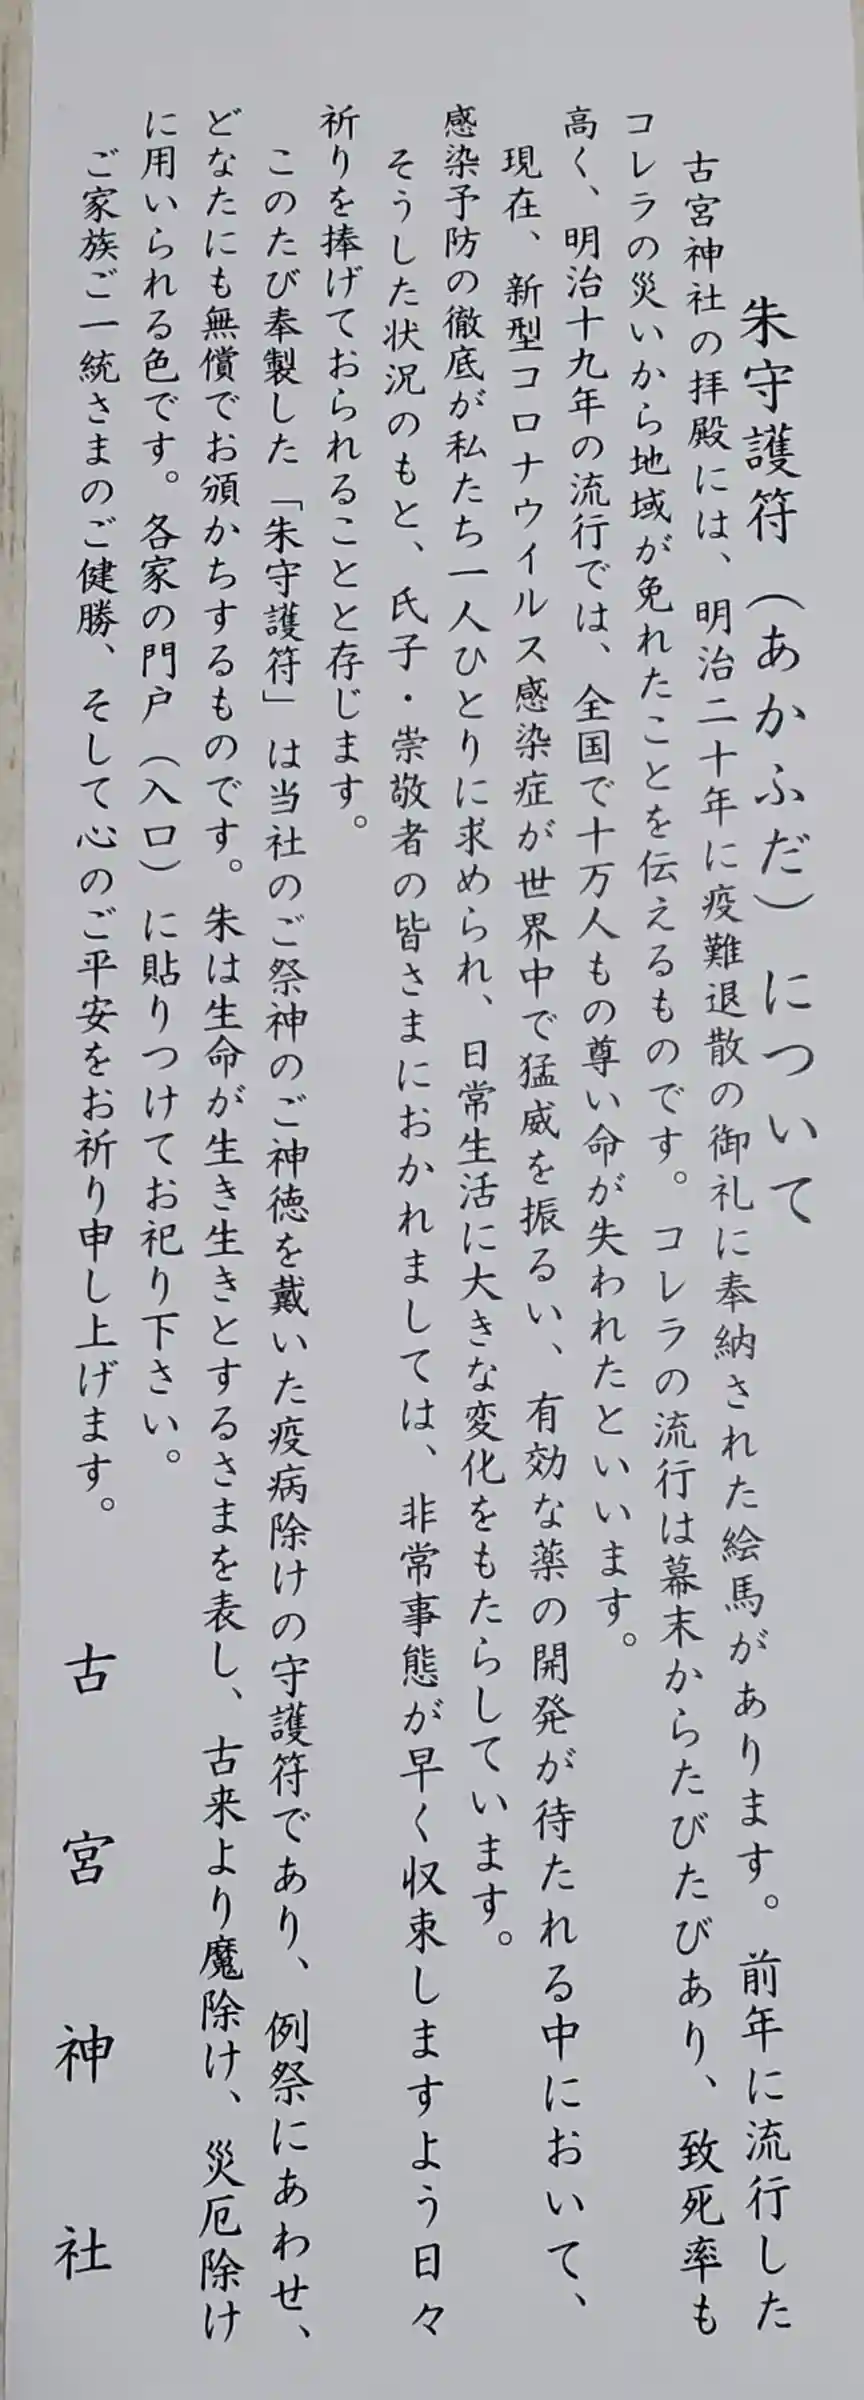 朱守護符（あかふだ）について
古宮神社の拝殿には、明治二十年に疫難退散の御礼に奉納された絵馬があります。前年に流行した
コレラの災いから地域が免れたことを伝えるものです。コレラの流行は幕末からたびたびあり、致死率も
高く、明治十九年の流行では、全国で十万人もの尊い命が失われたといいます。
現在、新型コロナウイルス感染症が世界中で猛威を振るい、有効な薬の開発が待たれる中において、
感染予防の徹底が私たち一人ひとりに求められ、日常生活に大きな変化をもたらしています。
そうした状況のもと、氏子・崇敬者の皆さまにおかれましては、非常事態が早く収束しますよう日々
祈りを捧げておられることと存じます。
このたび奉製した「朱守護符」は当社のご祭神のご神徳を戴いた疫病除けの守護符であり、例祭にあわせ、
どなたにも無償でお頒かちするものです。朱は生命が生き生きとするさまを表し、古来より魔除け、災厄除け
に用いられる色です。各家の門戸（入口）に貼りつけてお祀り下さい。
ご家族ご一統さまのご健勝、そして心のご平安をお祈り申し上げます。
古宮神社